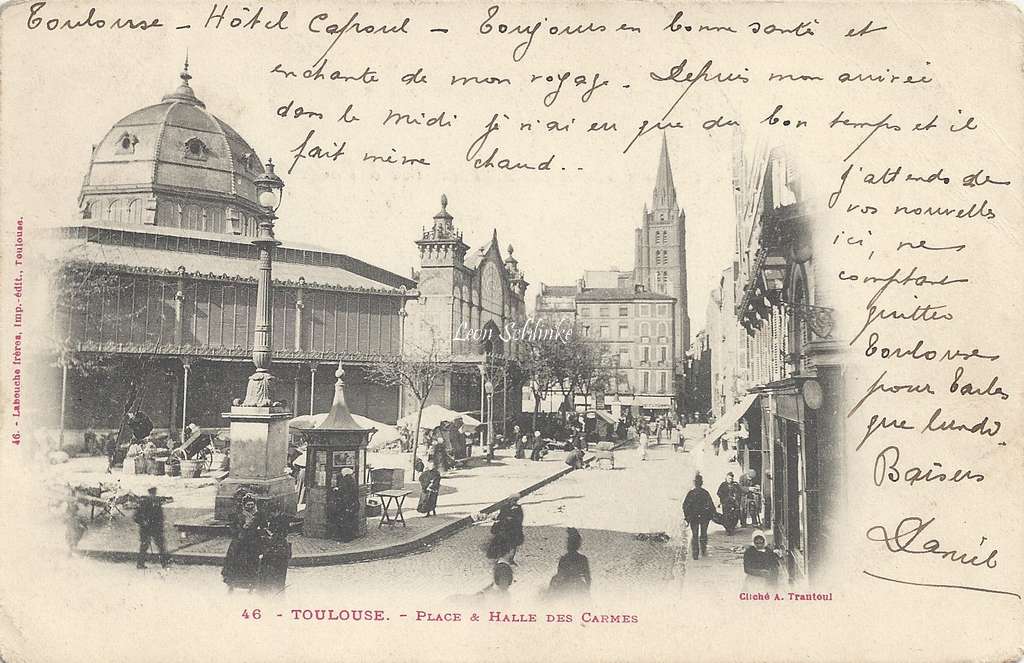 Toulouse - Hôtel Capoul - Toujours en bonne santé et
enchanté de mon voyage. Depuis mon arrivée
dans le Midi je n'ai eu que du bon temps et il
fait même chaud..
j'attends de
vos nouvelles
ici, ne
comptant
quitter
Toulouse
pour Tarbes
que lundi.
Baisers
Daniel
46. - Labouche frères, Imp.-édit., Toulouse.
Leon Schlinke
Cliché A. Trantoul
46 - TOULOUSE. - PLACE & HALLE DES CARMES